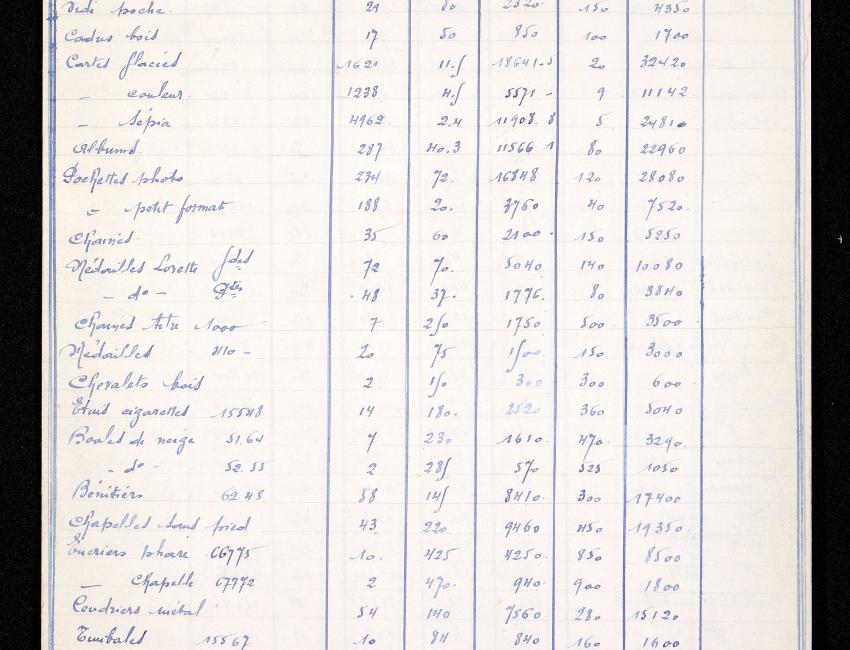 Vide poche 29 80 2320 150 4350
Cadres bois 17 50 850 100 1700
Cartes glacées 1621 11.5 18641.5 20 32420
– couleur 1238 4.5 5571 – 9 11142
– sépia 4962 2.4 11908.8 5 24810
Albums 287 40.3 11566 1 80 22960
Pochettes photo 234 72. 16848 120 28080
– petit format 188 20. 3760 40 7520
Chaînes 35 60 2100 150 5250
Médailles Lorette gdes 72 70. 5040 140 10080
– do – 48 37. 1776. 80 3840
Chaînes titre 1000 7 250 1750 500 3500
Médailles 20 75 1500 150 3000
Chevalets bois 2 150 300 300 600
Etuis cigarettes 15548 14 180. 2520 360 5040
Boules de neige 51.64 7 230 1610. 470. 3290.
– do – 52.55 2 285 570 525 1050
Bénitiers 62.48 58 145 8410. 300 17400
Chapelles sous pied 43 220 9460 450 19350.
Encriers phare C6775 10. 425 4250. 850 8500
– Chapelle C7772 2 470. 940. 900 1800
Cendriers métal 54 140 7560 280 15120
Timbales 15567 10 84 840 160 1600